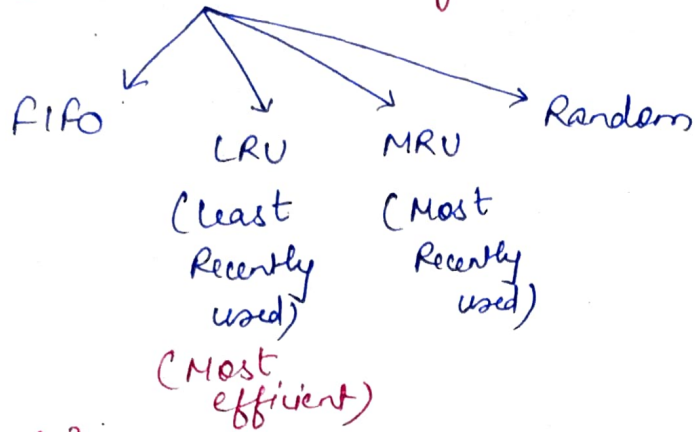 FIFO
LRU
(Least
Recently
used)
(Most
efficient)
MRU
(Most
Recently
used)
Random